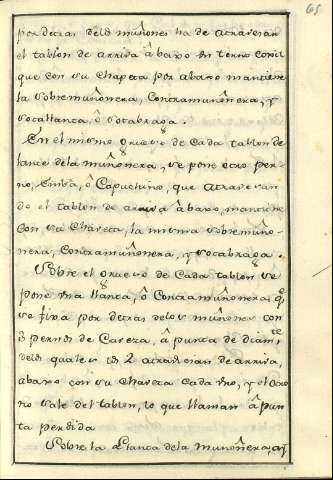 65
por detras delos muñones ha de atravesar
el tablon de arriva â baxo un terno con el
que con su chapeta por abaxo mantiene
la sobremuñonera, Contramuñonera, y
socallanca, ô sotabraga.
En el mismo grueso de cada tablon de
lante dela muñonera, se pone otro per
no, ô Capuchino, que atravesan
do el tablon de arriva â abaxo, mantiene
con su chaveta, la misma sobremuño
nera, contramuñonera, y sotabraga.
Sobre el grueso de cada tablon se
pone una llanca, ô Contramuñonera q.e
se fixa por detras delos muñones con
3 pernos de Caveza, â punta de diam.te
delos quales los 2 atraviesan de arriva,
abaxo con su chaveta cada uno, y el otro
no sale del tablon, lo que llaman â pun
ta perdida
Sobre la Llanca dela muñonera,